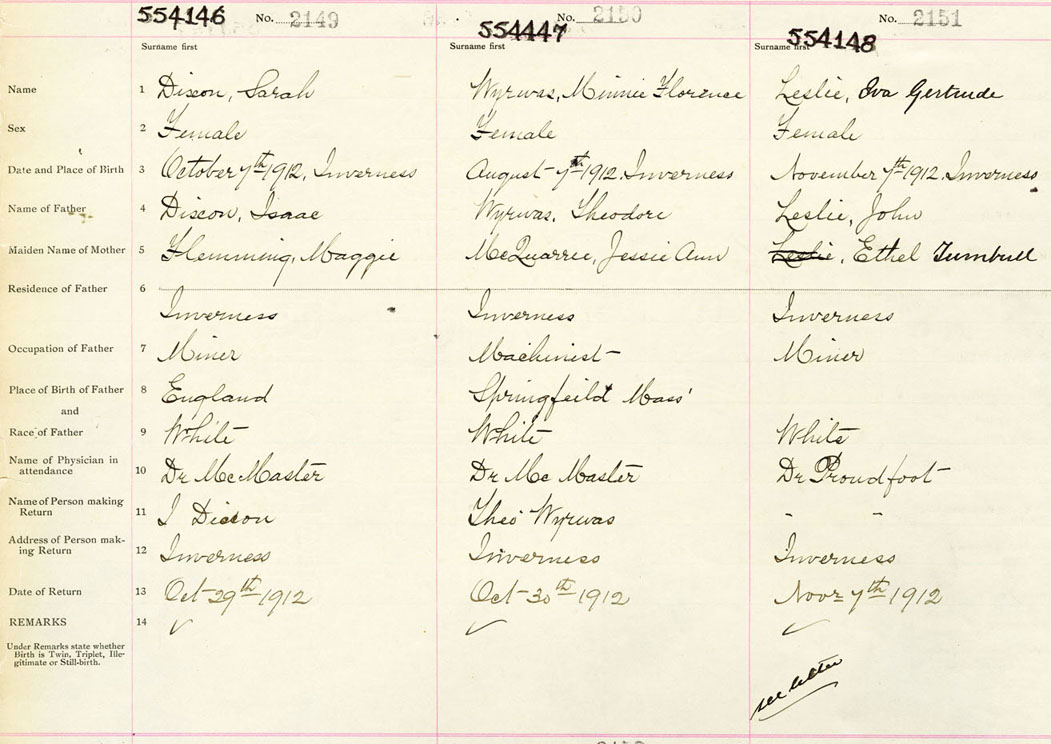 554146 No. 2149 554447 No. 2150 554148 No. 2151
Surname first Surname first Surname first
Name 1 Dixon, Sarah Wyrwas, Minnie Florence Leslie, Eva Gertrude
Sex 2 Female Female Female
Date and Place of Birth 3 October 7th 1912, Inverness August 7th 1912. Inverness November 7th 1912. Inverness
Name of Father 4 Dixon, Isaac Wyrwas, Theodore Leslie, John
Maiden Name of Mother 5 Flemming, Maggie McQuarrie, Jessie Ann Leslie, Ethel Turnbull
Residence of Father 6
Inverness Inverness Inverness
Occupation of Father 7 Miner Machinest Miner
Place of Birth of Father 8 England Springfeild Mass'
and
Race of Father 9 White White White
Name of Physician in
attendance 10 Dr McMaster Dr McMaster Dr Proudfoot
Name of Person making
Return 11 I Dixon Theo Wyrwas " "
Address of Person mak-
ing Return 12 Inverness Inverness Inverness
Date of Return 13 Oct 29th 1912 Oct 30th 1912 Novr 7th 1912
REMARKS 14
Under Remarks state whether
Birth is Twin, Triplet, Ille-
gitimate or Still-birth.
see letter